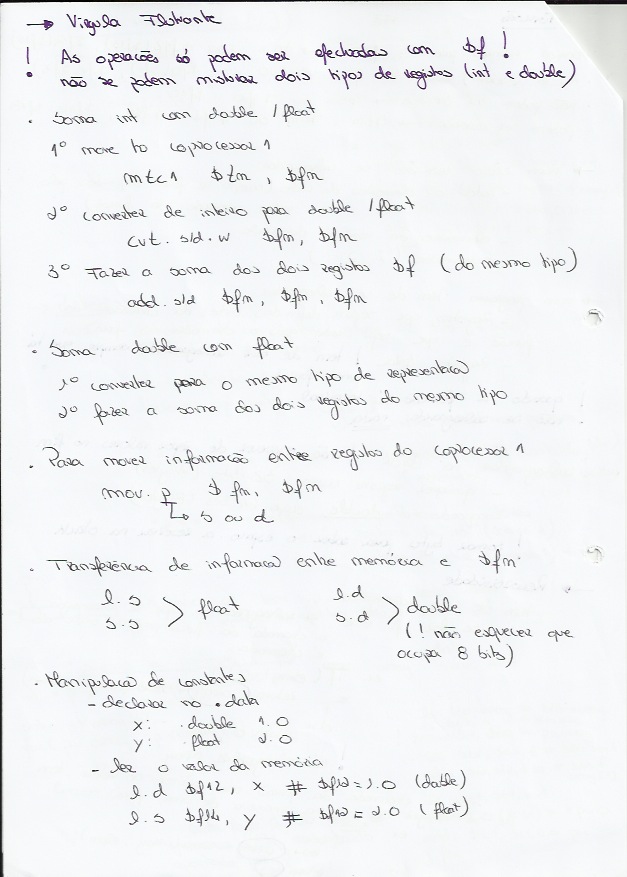 → Vírgula Flutuante
! As operações só podem ser efectuadas com $f !
! não se podem misturar dois tipos de registos (int e double)
. Soma int com double / float
1º move to coprocessor 1
mtc1 $tn, $fn
2º converter de inteiro para double / float
cvt. s/d. w $fn, $fn
3º Fazer a soma dos dois registos $f (do mesmo tipo)
add. s/d $fn, $fn, $fn
. Soma double com float
1º converter para o mesmo tipo de representaca
2º fazer a soma dos dois registos do mesmo tipo
. Para mover informacão entre registos do coprocessor 1
mov. p $fn, $fn
↳ s ou d
. Transferência de informaca entre memória e $fn.
l.s
s.s > float
l.d
s.d > double
(! não esquecer que
ocupa 8 bits)
. Manipulaca de constantes
- declarar no .data
x: .double 1.0
y: .float 2.0
- ler o valor da memória
l.d $f12, x # $f12=1.0 (double)
l.s $f14, y # $f12=2.0 (float)